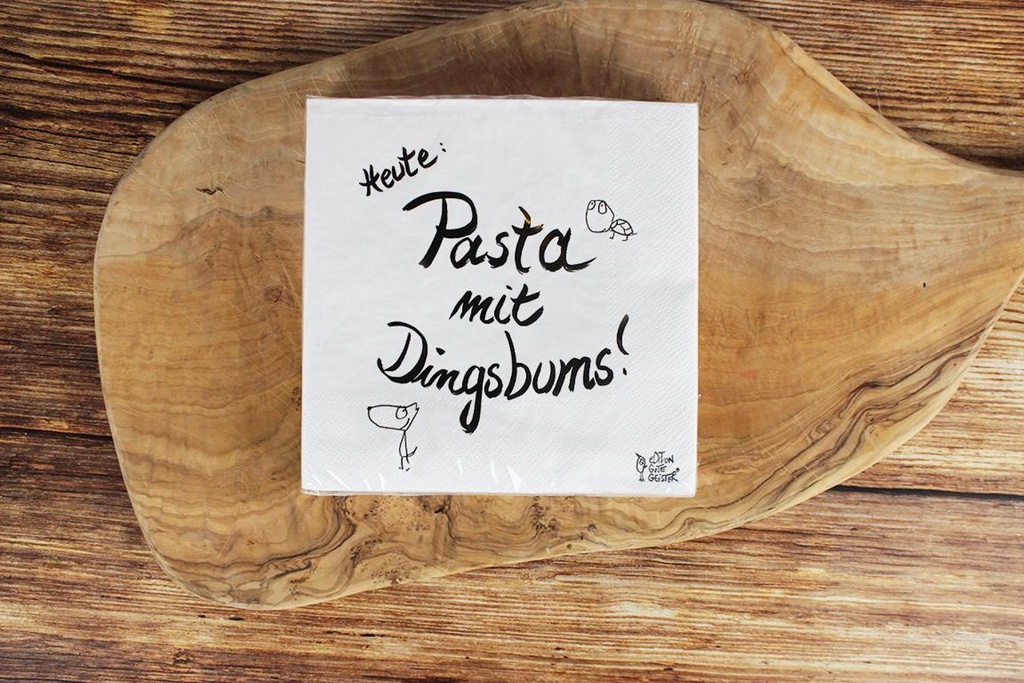 Heute:
Pasta
mit
Dingsbums!
EDITION
GUTE
GEISTER